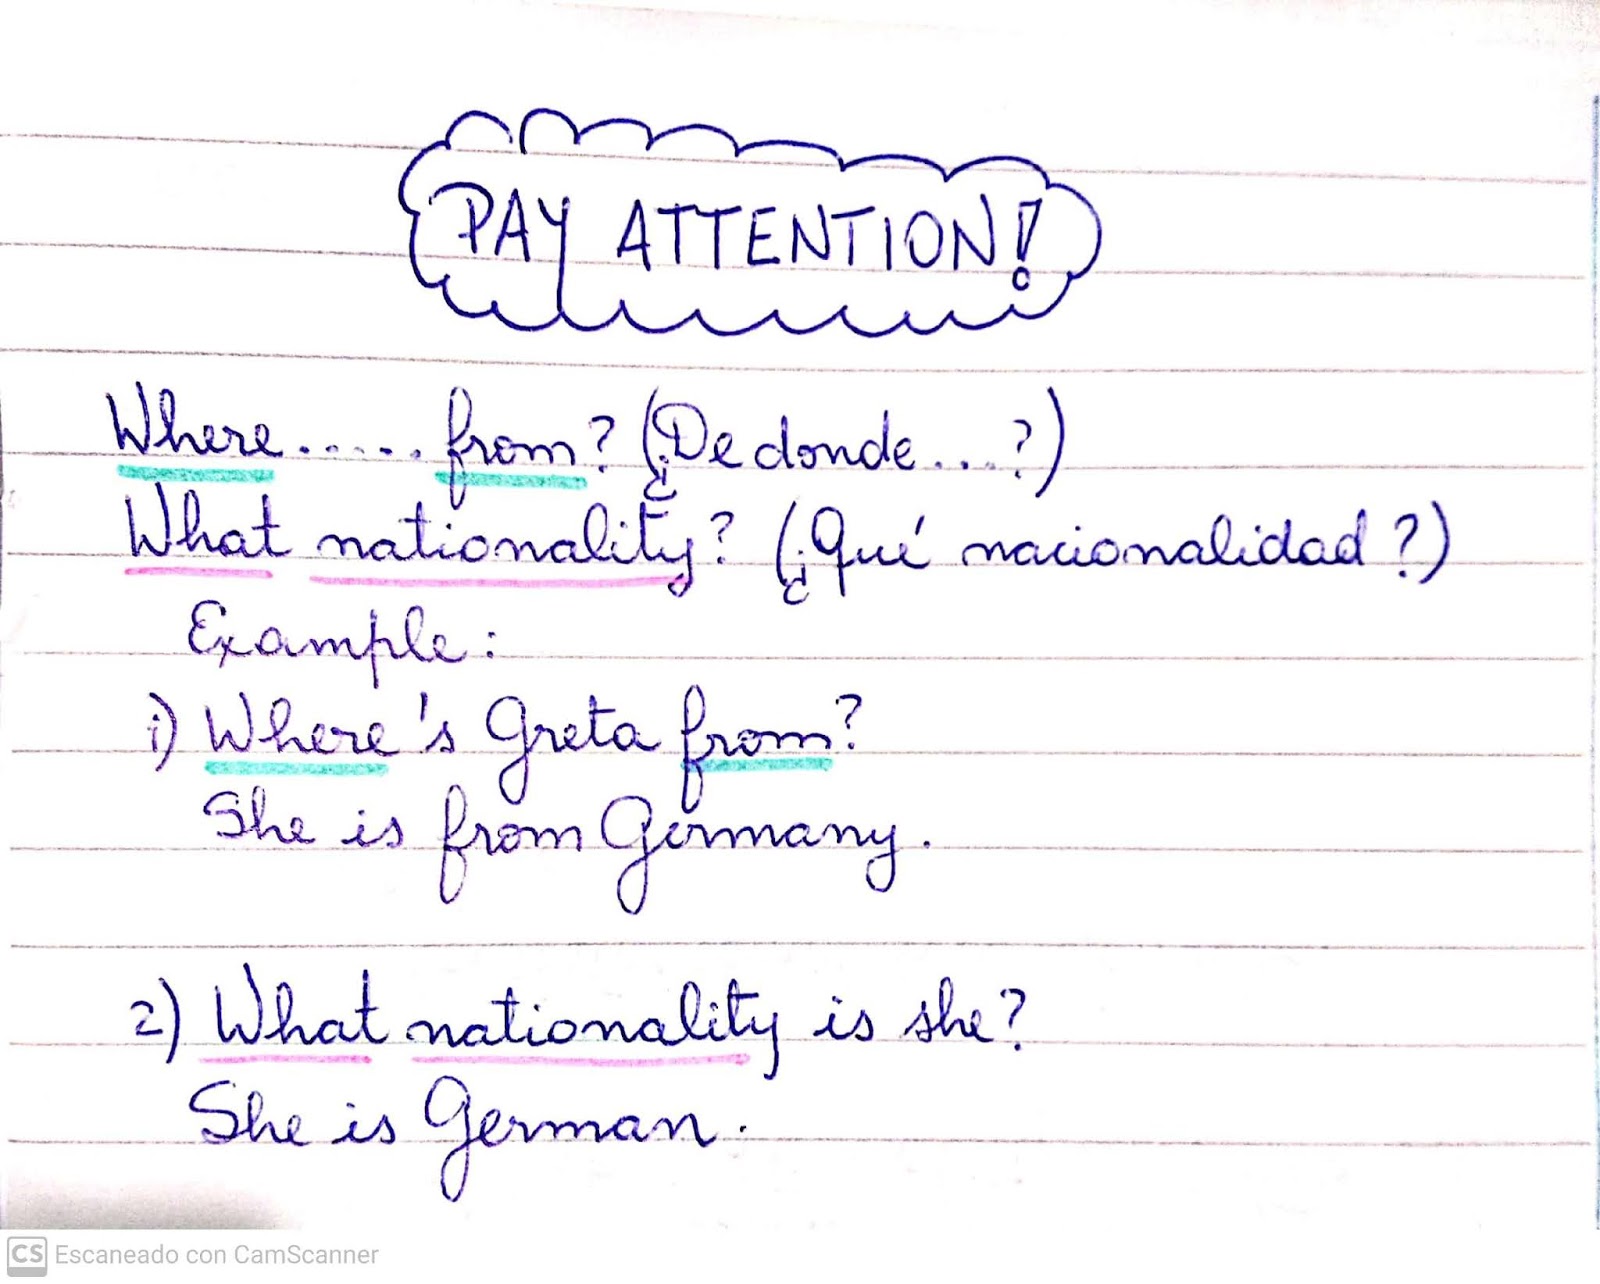 PAY ATTENTION!
Where...... from? (¿De donde...?)
What nationality? (¿Qué nacionalidad?)
Example:
1) Where's Greta from?
She is from Germany.
2) What nationality is she?
She is German.
CS Escaneado con CamScanner